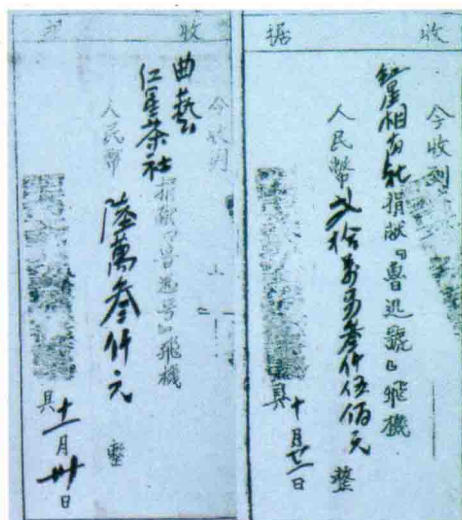 收据
今收到
紅星相声社捐献『魯迅號』飛機
人民幣弍拾萬另叁仟伍佰元整
具十月日
收
今收到
曲藝
仁星茶社捐献『魯迅号』飛機
人民幣陸萬叁仟元整
具十一月卅日